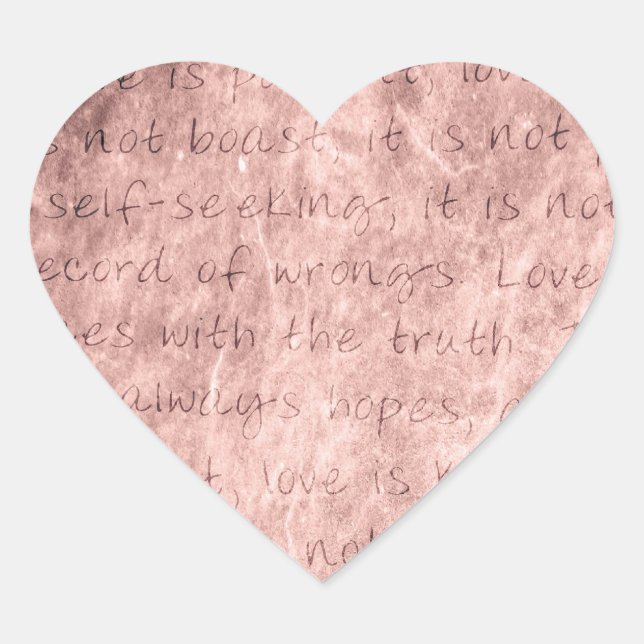 is
s not boast, it is not
self-seeking, it is not
ecord of wrongs. Love
es with the truth.
always hopes,
t, love is
not